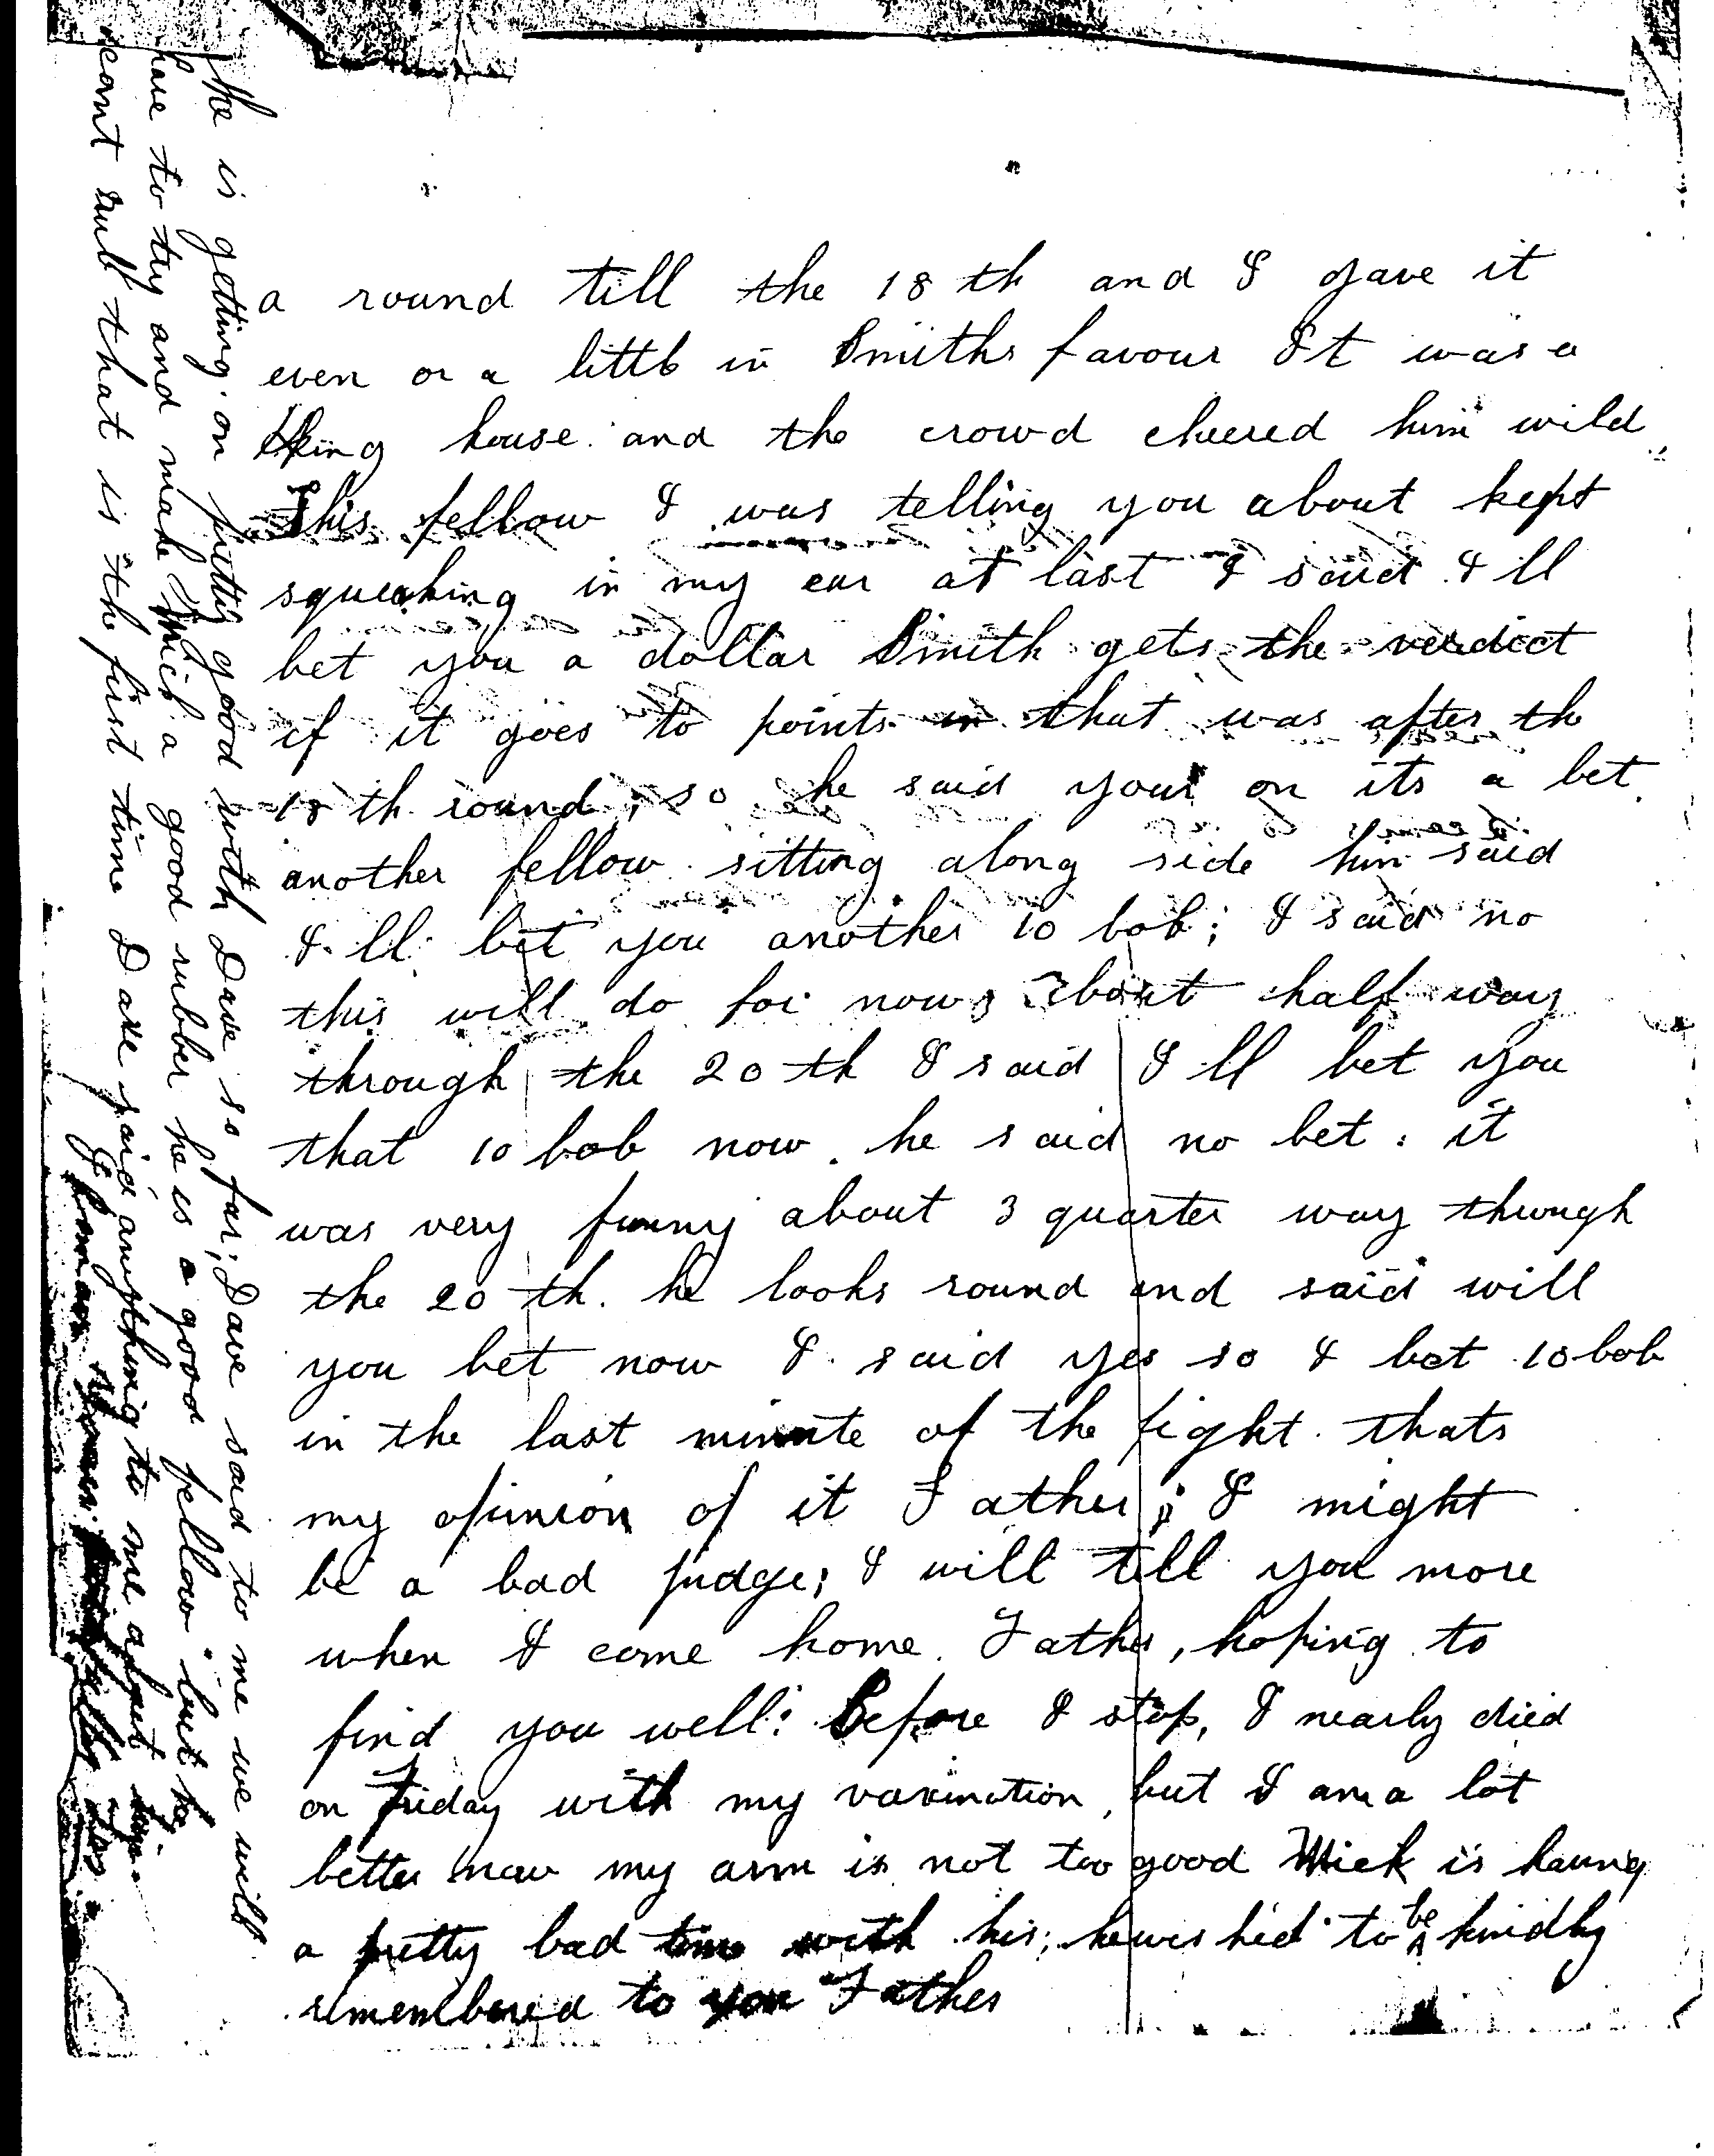 a round till the 18 th and I gave it
even or a little in Smiths favour It was a
king house and the crowd cheered him wild
This fellow I was telling you about kept
squeaking in my ear at last I said I ll
bet you a dollar Smith gets the verdict
if it goes to points that was after the
18 th round, so he said your on its a bet
another fellow sitting along side him said
I ll bet you another 10 bob; I said no
this will do for now, about half way
through the 20 th I said I ll bet you
that 10 bob now. he said no bet. it
was very funny about 3 quarter way through
the 20 th. he looks round and said will
you bet now I said yes so I bet 10 bob
in the last minute of the fight. thats
my opinion of it Father; I might
be a bad judge; I will tell you more
when I come home. Father, hoping to
find you well: Before I stop, I nearly died
on Friday with my vaxination, but I am a lot
better now my arm is not too good Mick is having
a pretty bad time with his; he wished to be kindly
remembered to you Father
he is getting on pretty good with Dave so far; Dave said to me we will
have to try and make Mick a good rubber he is a good fellow but he
cant rub that is the first time Dave said anything to me about